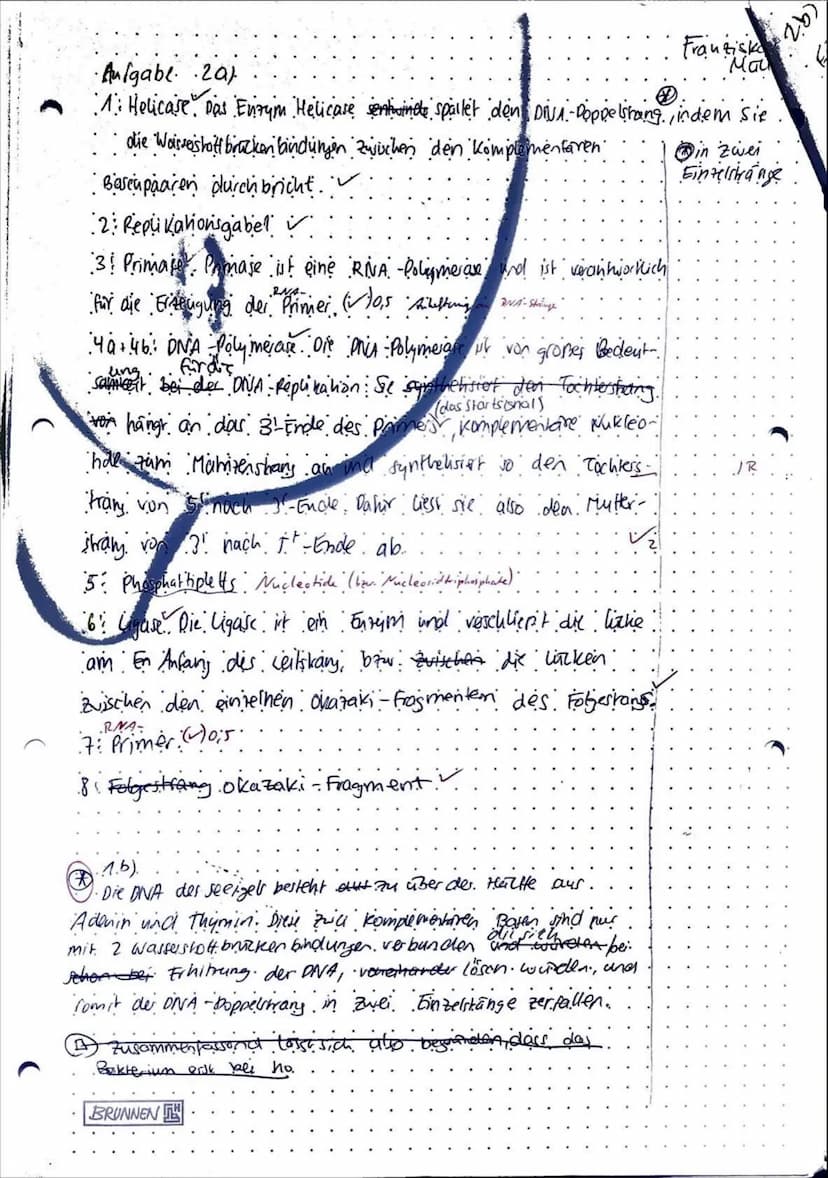 2b)
Franziska
Aufgabe 2a)
1: Helicase ✓ Das Enzym Helicase spaltet den DNA-Doppelstrang ⊛, indem sie
die Wasserstoffbrückenbindungen zwischen den komplementären
⊛ in zwei
Einzelstränge
Basenpaaren durchbricht. ✓
2: Replikationsgabel ✓
3: Primase ✓ Primase ist eine RNA-Polymerase und ist verantwortlich
für die Erzeugung der RNA Primer. (✓) 0,5 RNA-Stränge
4a+4b: DNA-Polymerase ✓ Die DNA-Polymerase ist von großer Bedeut-
ung für die DNA-Replikation: Sie synthetisiert den Tochterstrang
(das Startsignal)
von hängt an das 3'-Ende des Primers, komplementäre Nukleo-
tide zum Matrizenstrang an und synthetisiert so den Tochters-
1R
trang von 5' nach 3'-Ende. Dafür liest sie also den Mutter-
strang von 3' nach 5'-Ende ab.
✓2
5: Phosphattipletts Nucleotide (bzw. Nucleosidtriphosphate)
6: Ligase ✓ Die Ligase ist ein Enzym und verschließt die Lücke
am En Anfang des Leitstrang, bzw. zwischen die Lücken
zwischen den einzelnen Okazaki-Fragmenten des Folgestrangs. ✓
RNA-
7: Primer (✓) 0,5
8: Folgestrang Okazaki-Fragment ✓
⊛ 1.b)
Die DNA des Seeigels besteht zu über der Hälfte aus
Adenin und Thymin. Diese zwei komplementären Basen sind nur
mit 2 Wasserstoffbrückenbindungen verbunden die sich und würden bei
schon bei Erhitzung der DNA, lösen würden, und
somit der DNA-Doppelstrang in zwei Einzelstränge zerfallen.
Zusammenfassend lässt sich also begründen, dass das
Bakterium erst bei ho
BRUNNEN